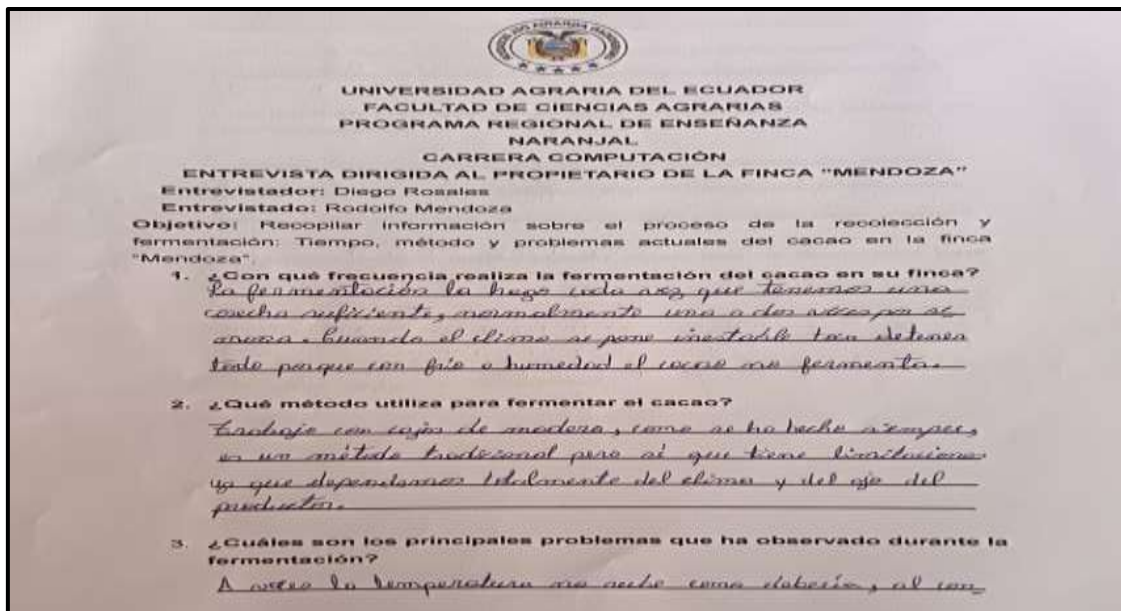 UNIVERSIDAD AGRARIA DEL ECUADOR
FACULTAD DE CIENCIAS AGRARIAS
PROGRAMA REGIONAL DE ENSEÑANZA
NARANJAL
CARRERA COMPUTACIÓN
ENTREVISTA DIRIGIDA AL PROPIETARIO DE LA FINCA "MENDOZA"
Entrevistador: Diego Rosales
Entrevistado: Rodolfo Mendoza
Objetivo: Recopilar información sobre el proceso de la recolección y
fermentación: Tiempo, método y problemas actuales del cacao en la finca
"Mendoza".
1. ¿Con qué frecuencia realiza la fermentación del cacao en su finca?
La fermentación la hago cada vez que tenemos una
cosecha suficiente, normalmente una a dos veces por se
mana. Cuando el clima se pone inestable toca detener
todo porque con frío o humedad el cacao no fermenta.
2. ¿Qué método utiliza para fermentar el cacao?
Trabajo con cajas de madera, como se ha hecho siempre,
es un método tradicional pero sí que tiene limitaciones
ya que dependemos totalmente del clima y del ojo del
productor.
3. ¿Cuáles son los principales problemas que ha observado durante la
fermentación?
A veces la temperatura no sube como debería, al con